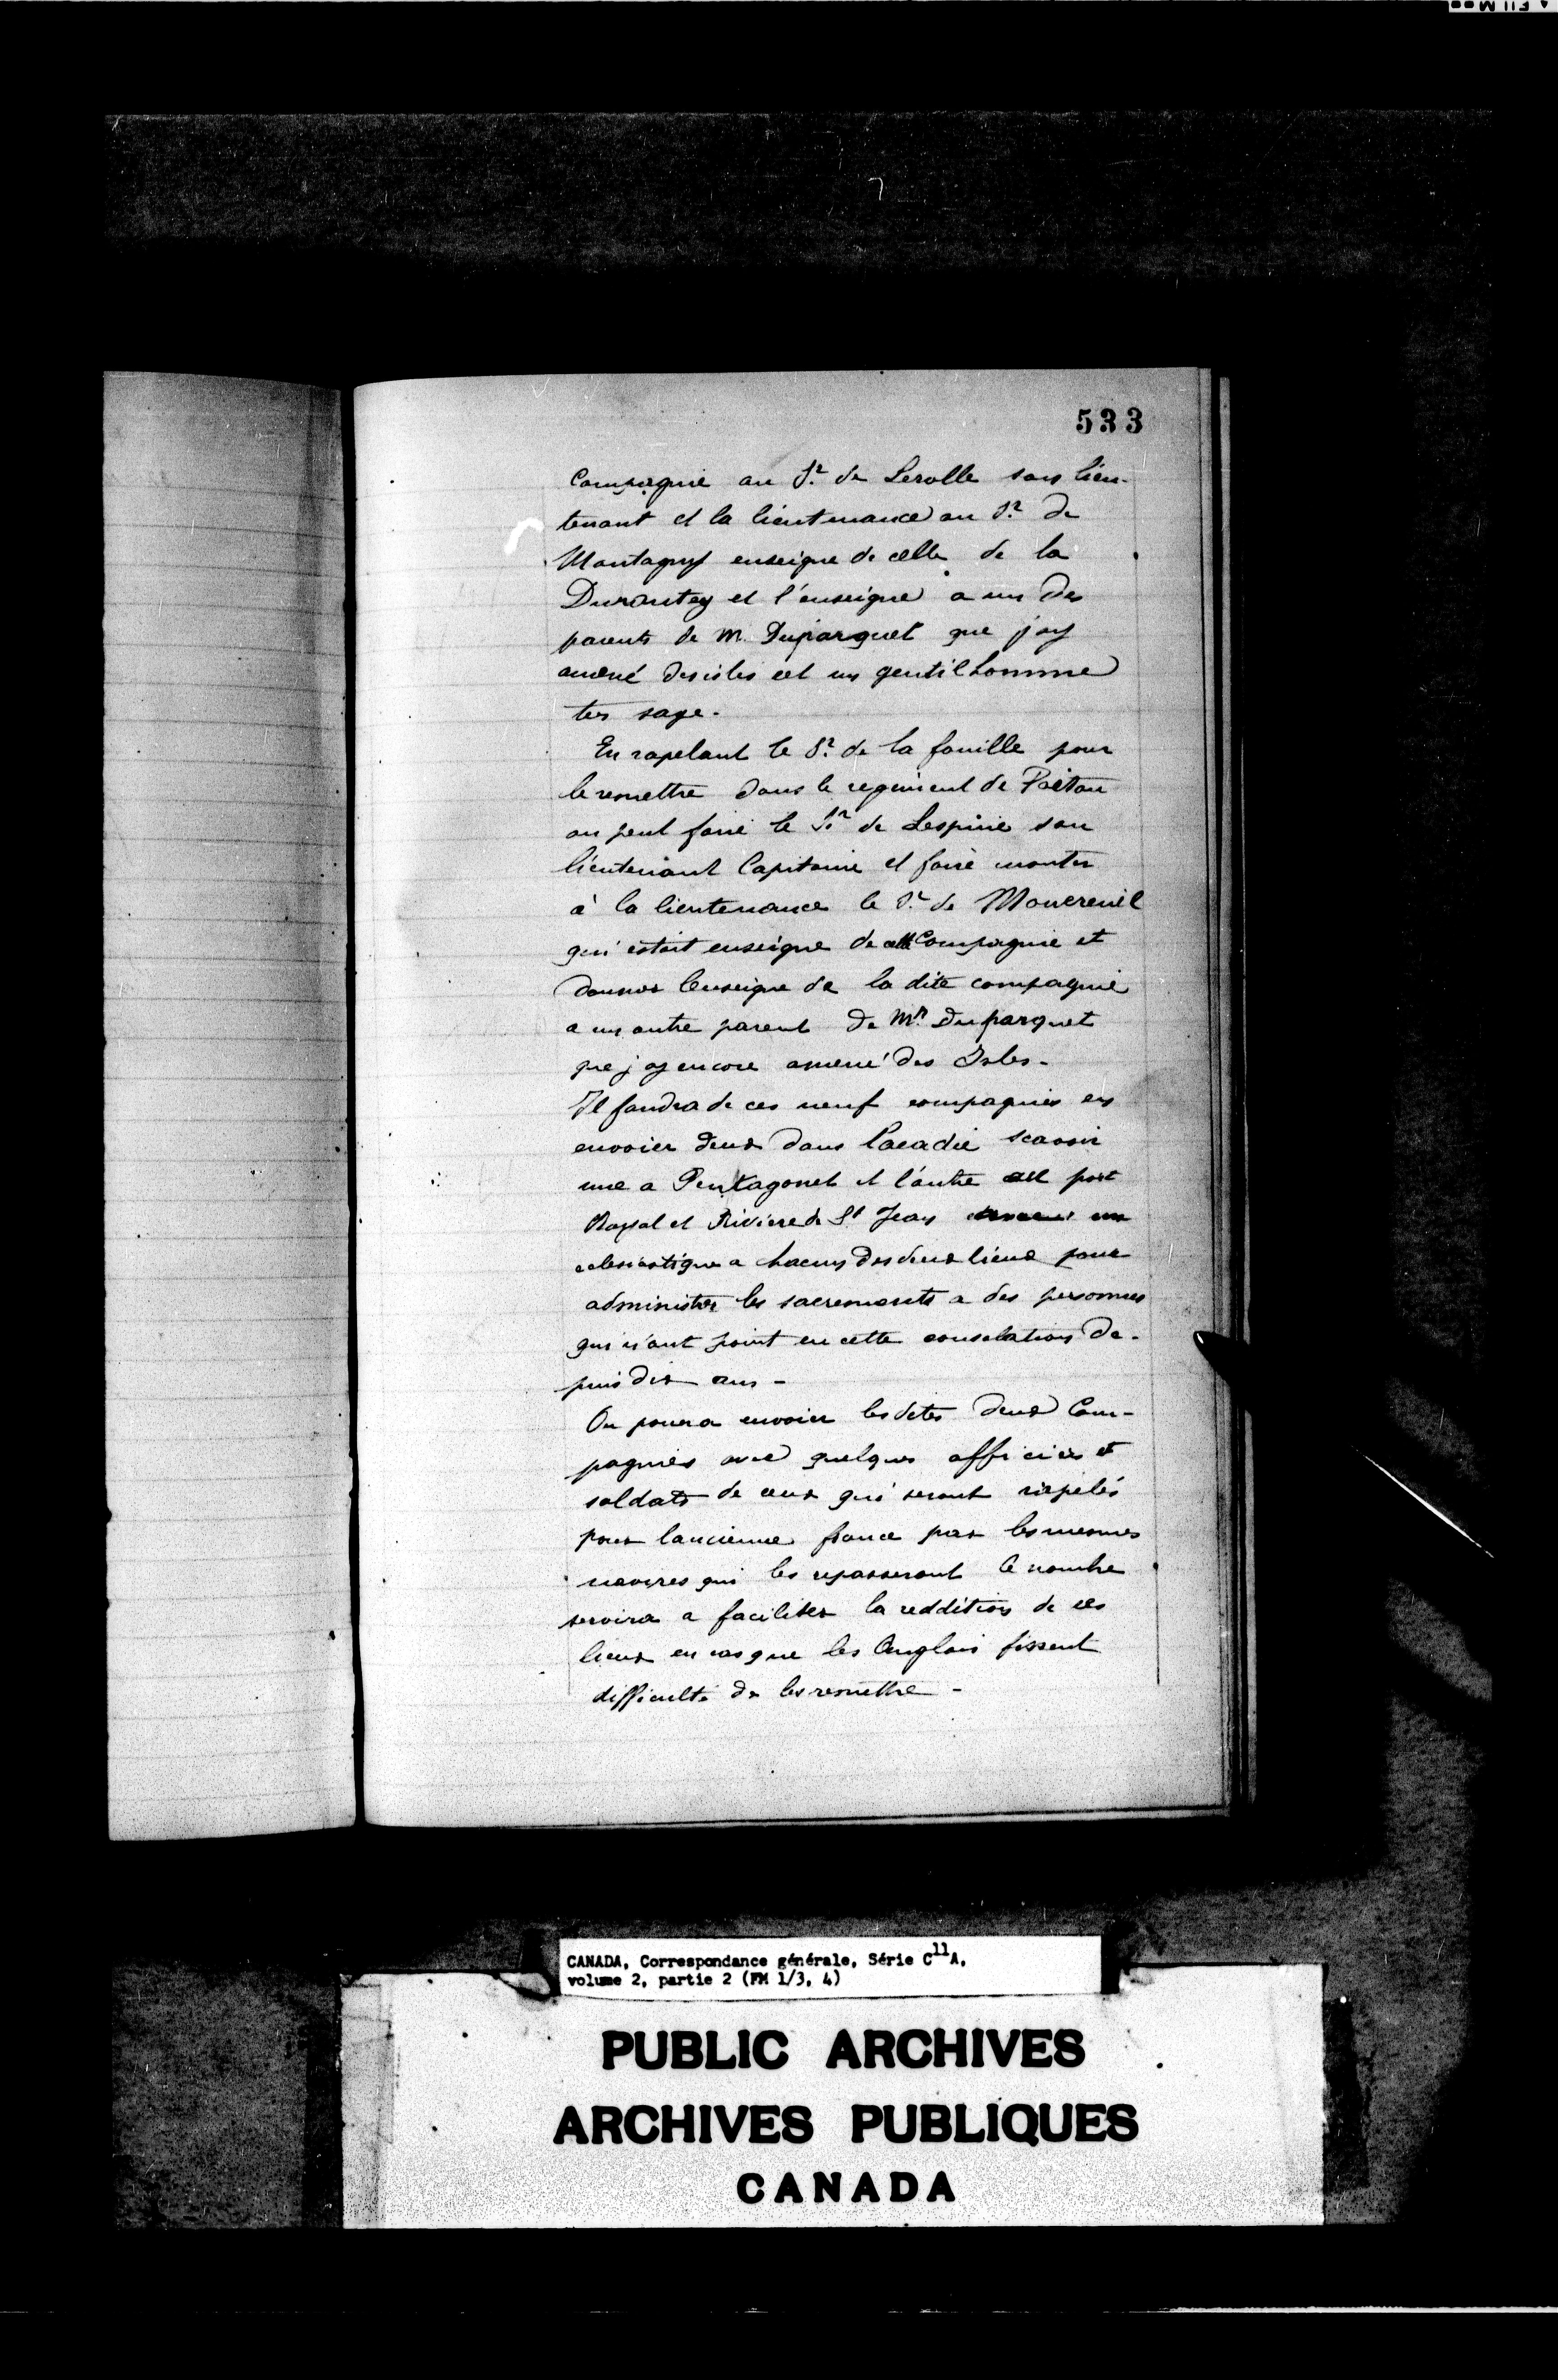 533
Compagnie au Sr. de Lerolle sous lieu-
tenant et la lieutenance au Sr. de
Montagny enseigne de celle de la
Durantey et l'enseigne a un des
parents de M. Duparquet que jay
amené des isles est un gentilhomme
tres sage.
En rapelant le Sr. de la fouille pour
le remettre dans le regiment de Poitou
on peut faire le Sr. de Lespine son
lieutenant Capitaine et faire monter
à la lieutenance le Sr. de Moucreuil
qui estoit enseigne de cette Compagnie et
donner lenseigne de la dite compagnie
a un autre parent de Mr. Duparquet
que jay encore amené des Isles.
Il faudra de ces neuf compagnies en
envoier deux dans Lacadie scavoir
une a Pentagonet et l'autre au port
Royal et Riviere de St Jean un
eclesiastique a chacun des deux lieux pour
administrer les sacrements a des personnes
qui n'ont point eu cette consolation de-
puis dix ans -
On poura envoier lesdites deux Com-
pagnies avec quelques officiers et
soldats de ceux qui seront rapelés
pour lancienne france par les mesmes
navires qui les repasseront le nombre
servira a faciliter la reddition de ces
lieux en cas que les Anglois fissent
difficulté de les remettre -
CANADA, Correspondance générale, Série C11A,
volume 2, partie 2 (FM 1/3, 4)
PUBLIC ARCHIVES
ARCHIVES PUBLIQUES
CANADA